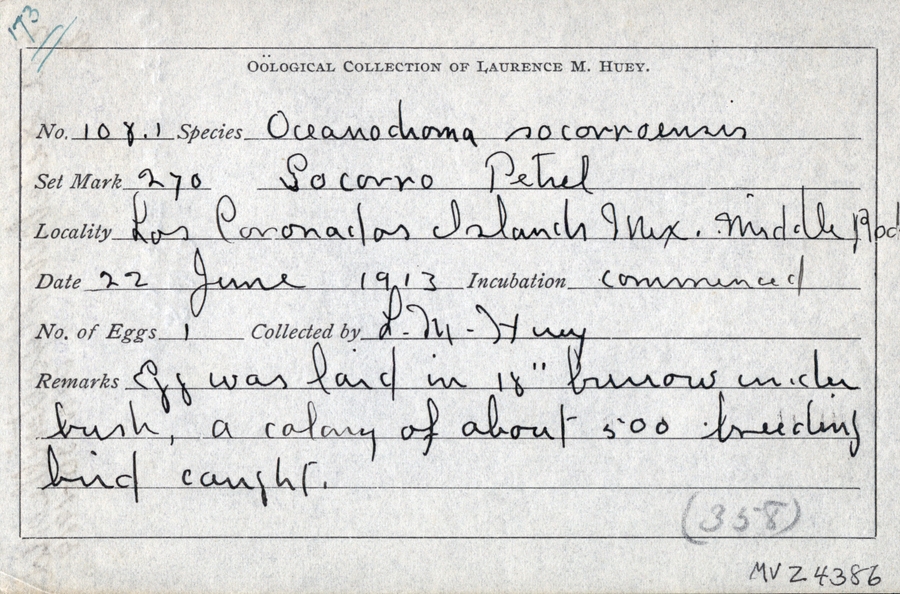 173
OÖLOGICAL COLLECTION OF LAURENCE M. HUEY.
No. 108.1 Species Oceanodroma socorroensis
Set Mark 270 Socorro Petrel
Locality Los Coronados Islands Mex. Middle
Date 22 June 1913 Incubation commenced
No. of Eggs 1 Collected by L. M. Huey
Remarks Egg was laid in 18" burrow under
bush, a colony of about 500 breeding
bird caught.
(358)
MVZ 4386